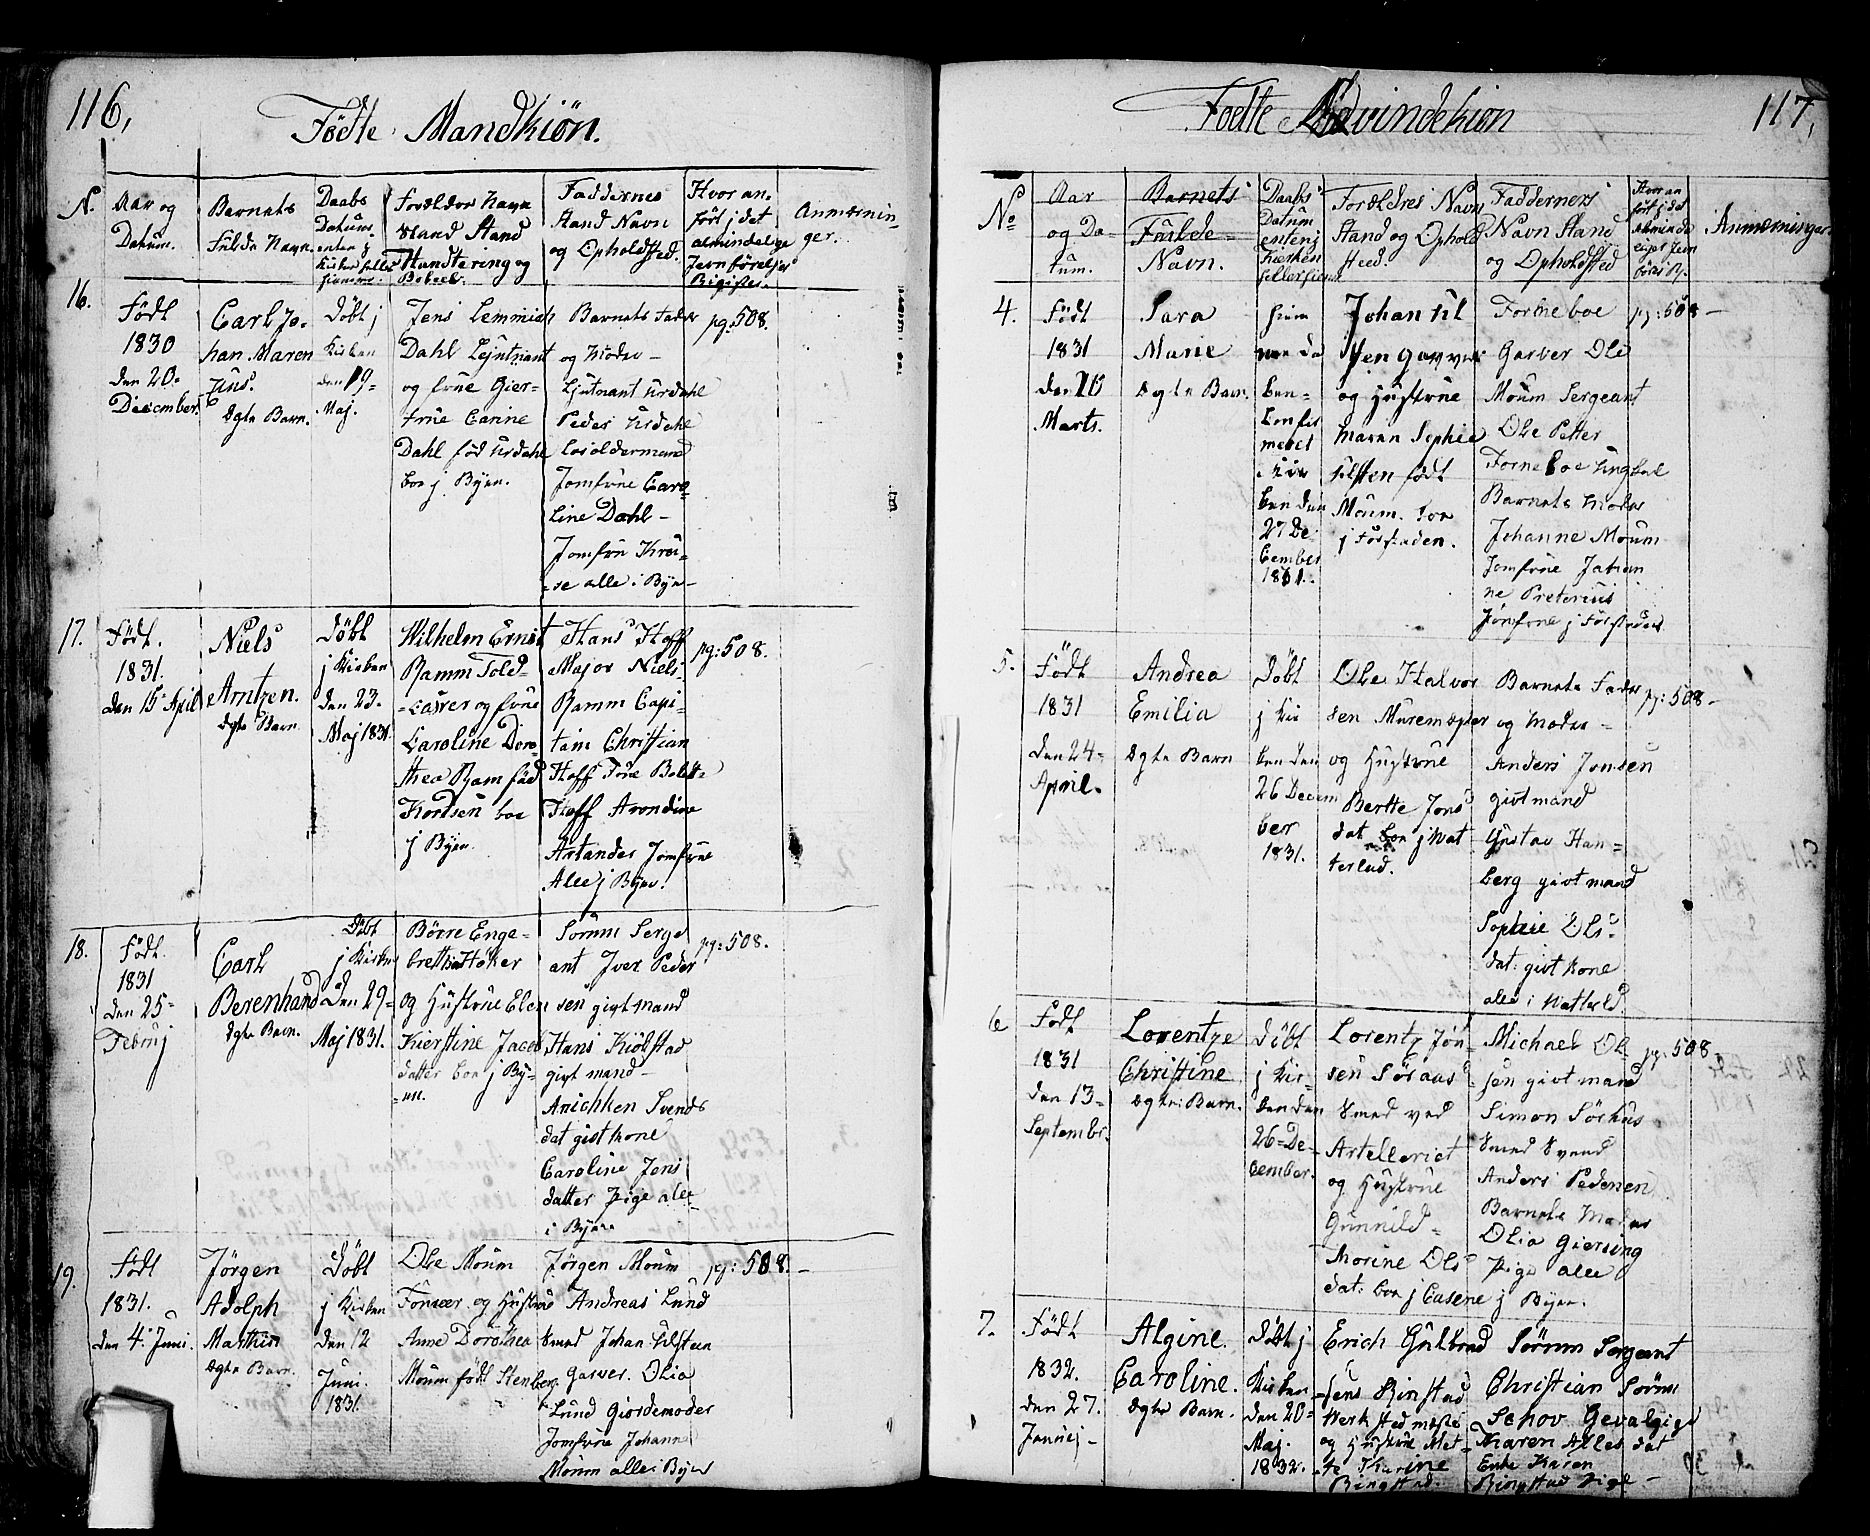 116,
Fødte Mandkiøn.
N.
Aar og
Datum.
Barnets
fulde Navn.
Daabs
Datum
enten i
Kirken eller
hiemme.
Forældres Navn
Stand
Handtering og
Bopæl.
Faddernes
Stand Navn
og Opholdsted.
Hvor an-
ført j det
almindelige
Jevnførelses
Register.
Anmærknin
ger.
16.
Født
1830
den 20-
December.
Carl Jo-
han Maren
Ægte Barn.
Døbt j
Kirken
den 19-
Maj.
Jens Lemmich
Dahl Leutnant
og frue Gier-
true Carine
Dahl fød Urdahl
boe j Byen.
Barnets Fader
og Moder -
Liutnant Urdahl
Peder Urdahl
Jomfrue Caro-
line Dahl -
Jomfrue
-se alle i Bye-
pg: 508.
17.
Født.
1831.
den 15 April
Niels
Arntzen.
Ægte Barn
Døbt
j Kirken
den 23-
Maj 1831.
Wilhelm Ernst
Ramm Told-
-casrer og frue
Caroline Doro-
thea Ram fød
Kordsen boe
j Byen.
Hans Hoff
Major Niels
Ramm Capi-
tain Christian
Hoff
Hoff
Jomfrue
Alle j Byen.
pg: 508.
18.
Født.
1831
den 25-
Februj
Carl
Berenhand
Ægte Barn.
Døbt
j Kirken
den 29-
Maj 1831.
Børre Enge-
brettsen Høker
og Hustrue Elen
Kierstine Jacob
datter boe j By-
-en.
Sørum Serge
ant Iver Peder
sen givt mand
Hans Kiølstad
givt mand -
Anichken Svends
dat givt kone
Caroline Jens
datter Pige alle
i Byen
pg: 508.
19.
Født
1831.
den 4 Junii.
Jørgen
Adolph
Marthin
Ægte Barn.
Døbt
j Kirken
den 12
Juni.
1831
Ole Moum
og Hustrue
Anne Dorothea
Moum født Stenberg
Jørgen Moum
Andreas Lund
Smed Johan Tilsteen
Garver. Olia
Lund Giordemoder
Jomfrue Johanne
Moum alle i Byen
pg: 508. -
117,
Fødte Qvindekiøn
No
Aar
og Da-
tum.
Barnets
Fulde-
Navn.
Daabs
Datum
enten j
Kirken
eller hiem
Forældres Navn
Stand og Ophold
sted.
Faddernes
Navn Stand
og Opholdsted
Hvor an
ført j det
alminde
Anmærninger
4.
Født
1831
den 16
Marts.
Sara
Marie
Ægte Barn.
hiem
me dø
ben-
Confir
meret
i Kir
ken den
27 De
cember
1831.
Johan Til
sten Garver
og Hustrue
Maren Sophie
Tilsten født
Moum. boe
j Forstaden.
Forneboe
Garver Ole
Moum Sergeant
Ole Petter
Forneboe Ungkarl
Barnets Moder
Johanne Moum
Jomfrue Fabian
ne Pretorius
Jomfrue j Forstaden
pg: 508 -
5.
Født
1831
den 24-
April.
Andrea
Emilia
Ægte Barn
Døbt
j Kir
ken den
26 Decem
ber
1831.
Ole Halvor
sen Muremester
og Hustrue
Berthe Jons
dat boe j Wat
terlud.
Barnets Fader
og Moder -
Anders Jonsen
givt mand
Gustav Han-
berg givt mand
Sophie Ols-
dat: givt kone
alle i
pg: 508 -
6
Født
1831
den 13-
Septembr.
Lorentze
Christine
Ægte: Barn.
Døbt
j Kir-
ken den
26-De-
cember.
Lorentz Jon
sen Søraas
Smed ved
Artelleriet
og Hustrue
Gunnild-
Marine Ols
dat: boe j Casene
Michael Ol-
sen givt mand
Simon Sørhus
Smed Svend
Anders Pedersen
Barnets Moder
Olia Giersing
Pige alle
j Byen.
pg: 508
7.
Født
1832.
den 27.
Januej-
Algine
Caroline.
Ægte Barn.
Døbt j
Kirken
den 20-
Maj.
1832.
Erich Gulbrand
-sens Ringstad
Værkstedmester
og Hustrue Met-
te Karine
Ringstad.
Sørum Sergeant
Christian Sørum
Schov Gevaldiger
Maren Alles dat
Enke Karen
Ringstad Pige -